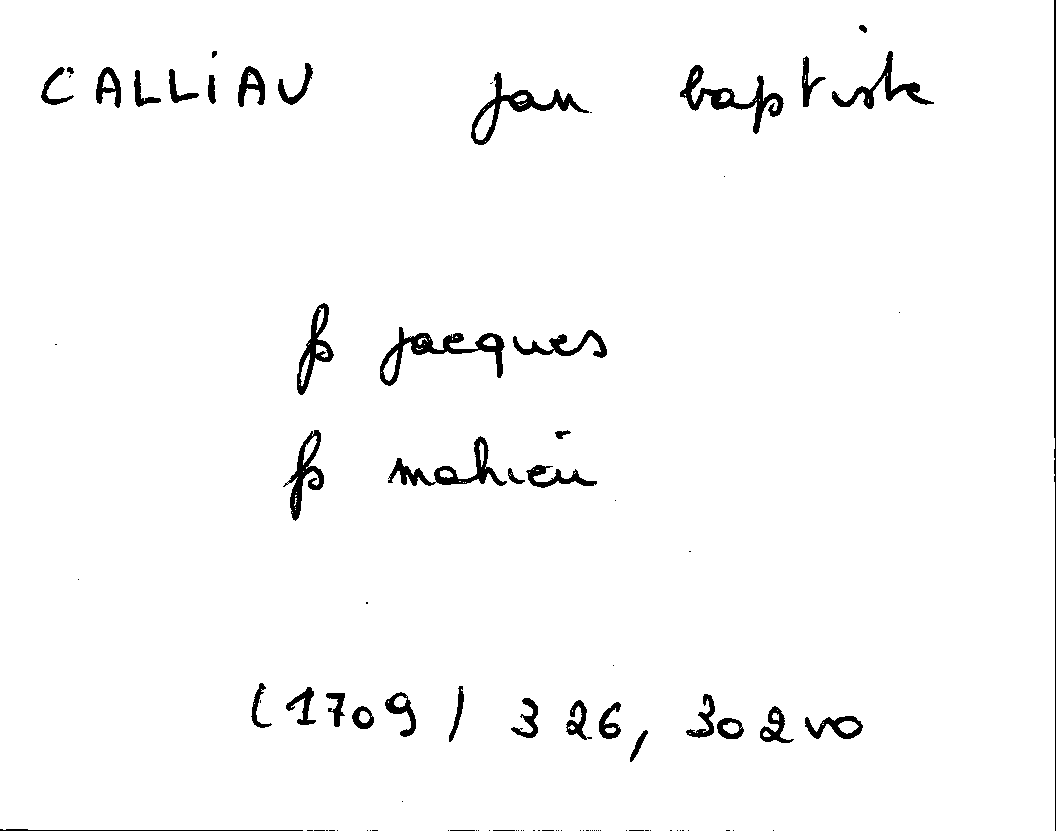 CALLiAU jan baptiste
fs jacques
fs mahieu
(1709) 326, 302vo